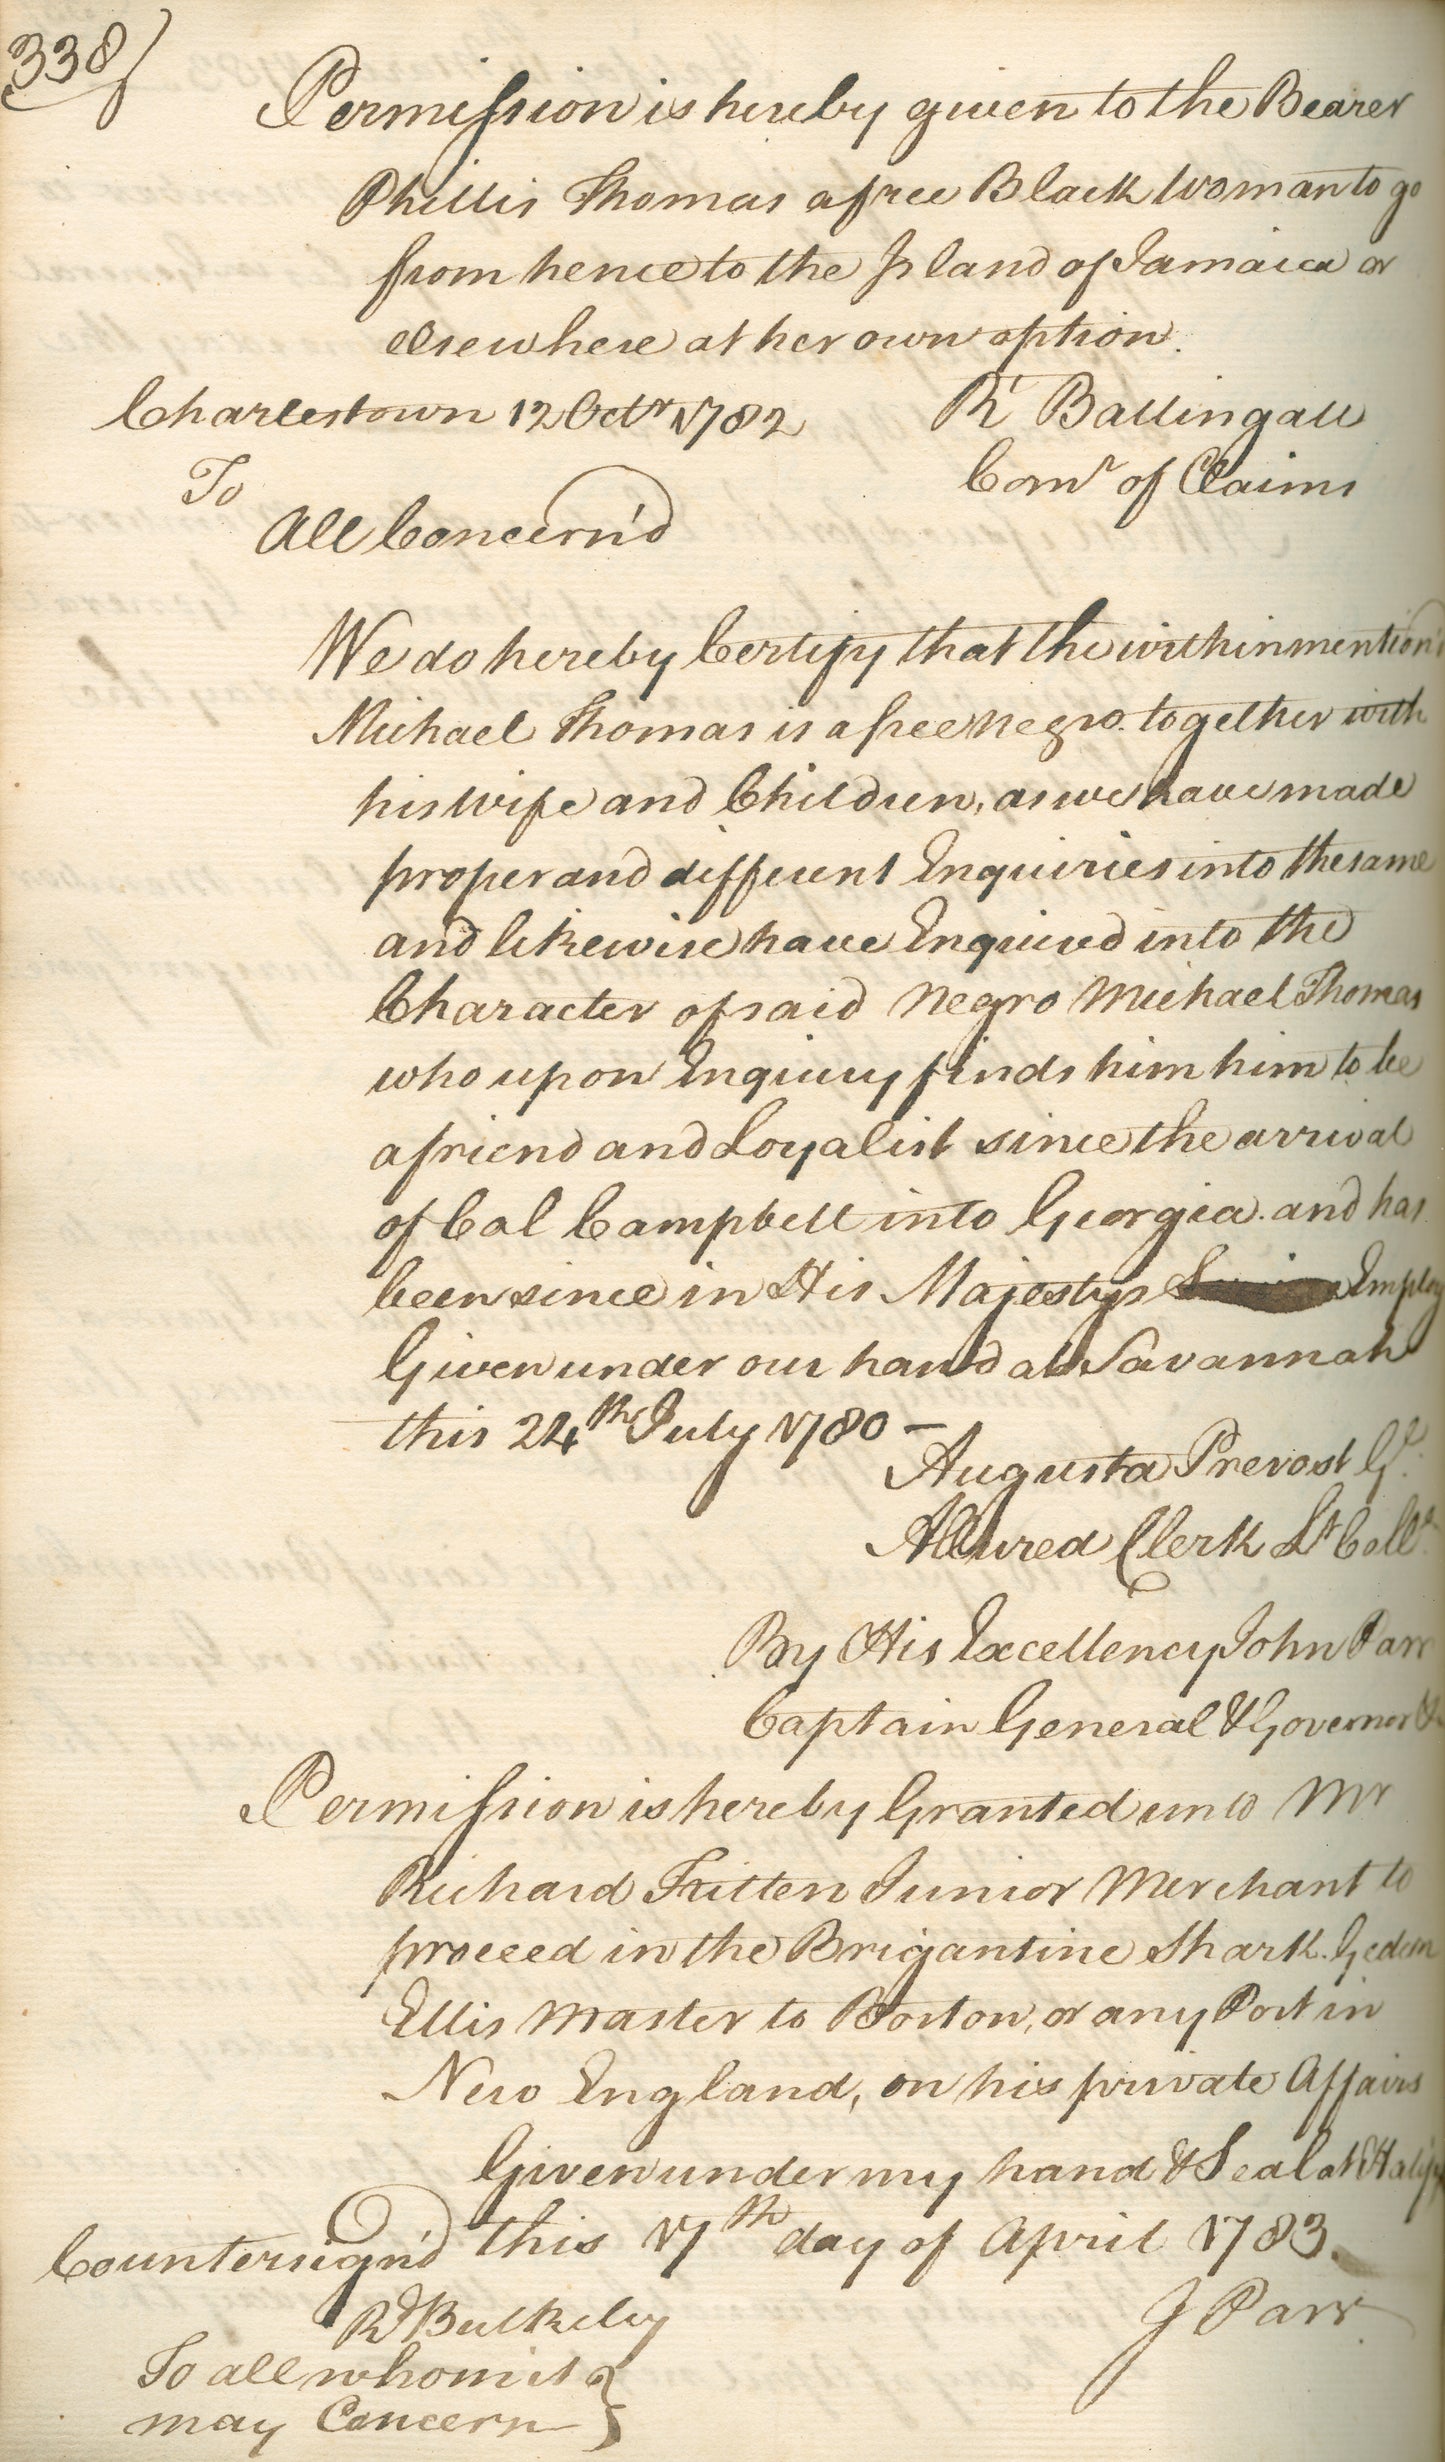 338
Permission is hereby given to the Bearer
Phillis Thomas a free Black Woman to go
from hence to the Island of Jamaica or
elsewhere at her own option.
Charlestown 12 Octr 1782
Rt Ballingall
Comr of Claims
To
All Concern'd
We do hereby Certify that the within mention'd
Michael Thomas is a free Negro. together with
his Wife and Children, as we have made
proper and different Enquiries into the same
and likewise have Enquired into the
Character of said Negro Michael Thomas
who upon Enquiry finds him him to be
a friend and Loyalist since the arrival
of Col Campbell into Georgia. and has
been since in His Majestys Employ
Given under our hand at Savannah
this 24th July 1780 —
Augusta Prevost Gl.
Allured Clerk Lt Coll.
By His Excellency John Parr
Captain General & Governor &
Permission is hereby Granted unto Mr
Richard Tritten Junior Merchant to
proceed in the Brigantine Shark. Gedion
Ellis Master to Boston, or any Port in
New England, on his private Affairs
Given under my hand & Seal at Halifx
this 17th day of April 1783.
Countersign'd
J Parr
Rd Bulkeley
To all whom it
may Concern